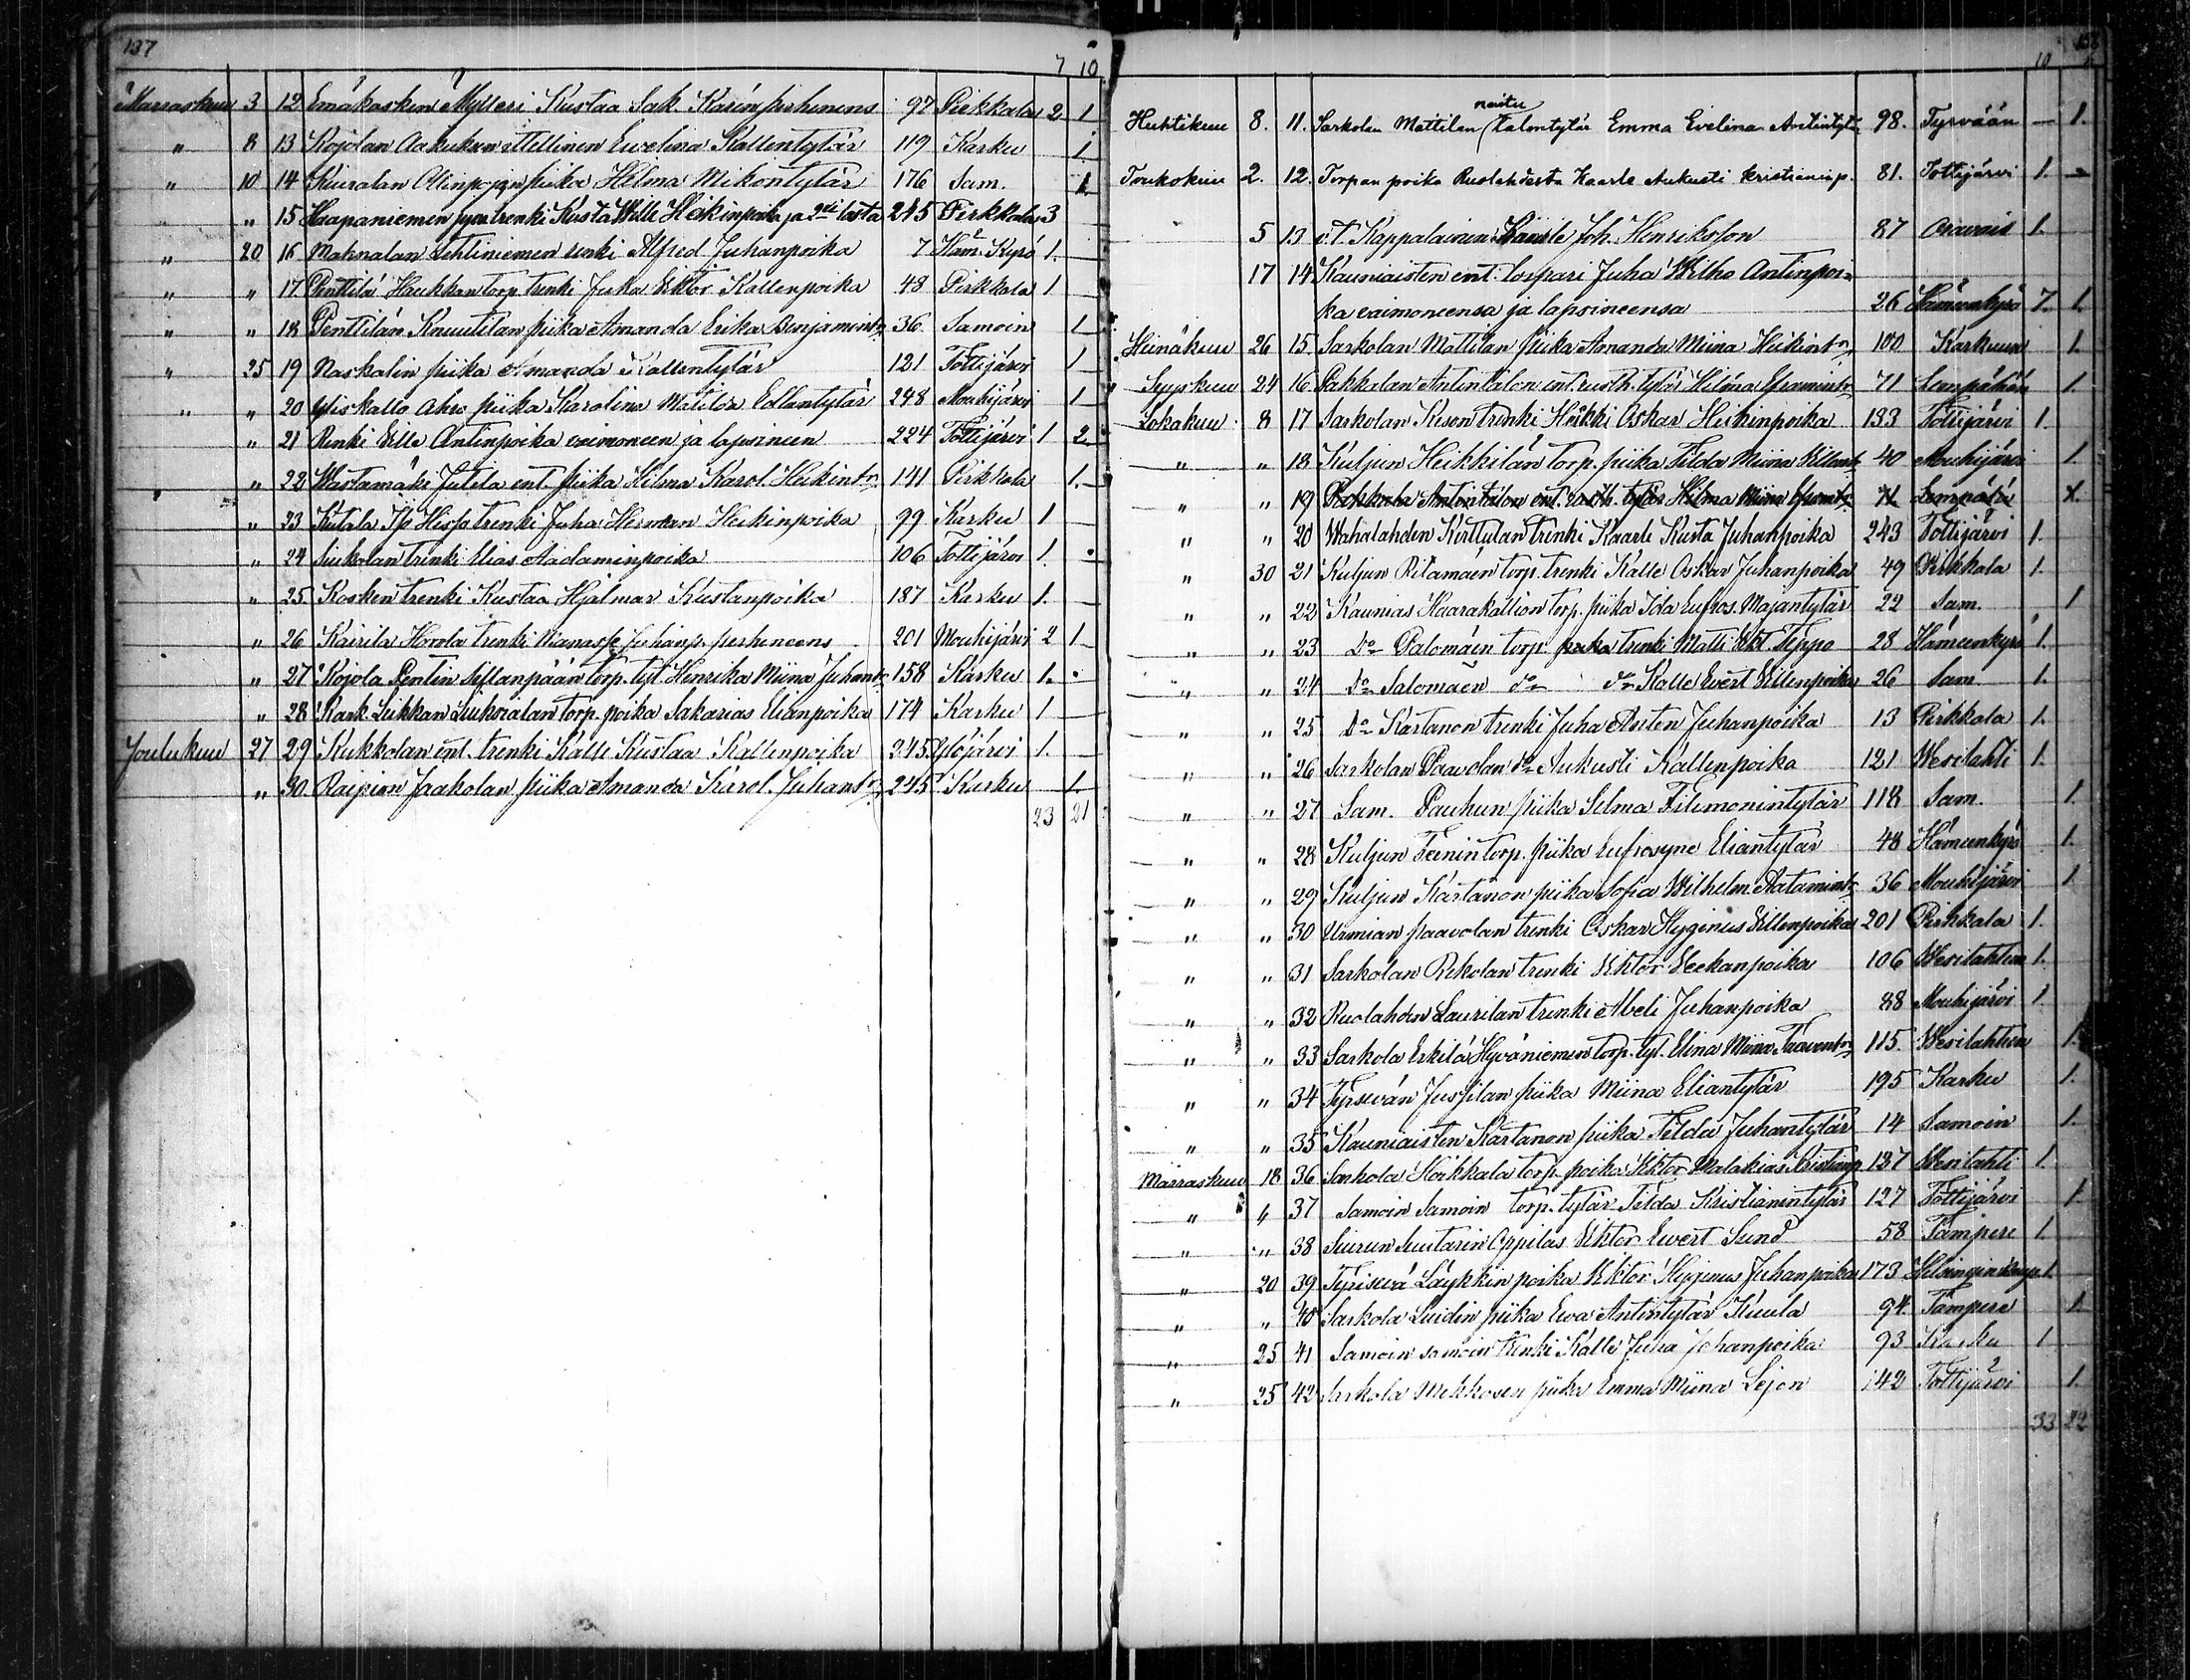 137
7 10
Marraskuu 3 12 Emäkosken Mylleri Kustaa Sak. Karin perhenens 97 Pirkkala 2 1
" 8 13 Kojolan Aakukun itellinen Ewelina Kallentytär 119 Karku 1
" 10 14 Kuuralan Olin piika Hilma Mikontytär 176 Sam. 1
" 15 Haapaniemen trenki Kusta Wille Heikinpoika ja 2 lasta 245 Pirkkala 3
" 20 16 Mahnalan Lehtiniemen renki Alfred Juhanpoika 7 Häm. Kyrö 1.
" " 17 Penttilä Haukkan torp. trenki Juka Viktor Kallenpoika 48 Pirkkala 1
" " 18 Penttilän Knuutilan piika Amanda Erika Benjamint. 36 Samoin 1
" 25 19 Naskalin piika Amanda Kallentytär 121 Tottijärvi 1
" " 20 Yliskallo Ahro piika Karolina Matilda Edlantytär 248 Mouhijärvi 1
" 21 Renki Ville Antinpoika vaimoneen ja lapsineen 224 Tottijärvi 1 2
" 22 Wastamäki Jutila ent. piika Hilma Karol. Heikintr. 141 Pirkkala 1.
" 23 Kutala Ii Hissa trenki Juha Herman Heikinpoika 99 Karku 1
" 24 Siukolan trenki Elias Aadaminpoika 106 Tottijärvi 1.
" 25 Kosken trenki Kustaa Hjalmar Kustanpoika 187 Karku 1.
" 26 Kairila Horola trenki Manasse Juhanp. perheneens 201 Mouhijärvi 2 1
" 27 Kojola Pentin Sillanpään torp. tyt. Henrika Miina Juhant. 158 Karku 1.
" 28 Kark. Leikkan torp. poika Sakarias Elianpoika 174 Karku 1
Joulukuu 27 29 Kukkolan ent. trenki Kalle Kustaa Kallenpoika 245 Ylöjärvi 1.
" 30 Raipion Jaakolan piika Amanda Karol. Juhantr. 245 Karku 1
23 21
10
Huhtikuu 8. 11. Sarkolan Mattilan (naitu talontytär Emma Evelina Antintyt. 98. Tyrvään — 1.
Toukokuu 2. 12. Torpan poika Ruolahdesta Kaarle Aukusti Kristianinp. 81. Tottijärvi 1. —
5 13 v.t. Kappalainen Kaarle Joh. Henriksson 87 Oravais 1.
17 14 Kauniaisten ent. torpari Juha Wilho Antinpoi=
ka vaimoneensa ja lapsineensa 26 Hämeenkyrö 7. 1.
Heinäkuu 26 15 Sarkolan Mattilan piika Amanda Miina Heikintr. 100 Karkuun 1.
Syyskuu 24 16 Pakkolan Antintalon ent. ruoth. tytär Hilma Efraimintr. 71 Lempäälä 1.
Lokakuu 8 17 Sarkolan Keson trenki Heikki Oskar Heikinpoika 133 Tottijärvi 1.
" " 18 Kuljun Heikkilän torp. piika Tilda Miina Villent. 40 Mouhijärvi 1.
" " 19 Pakkala Antintalon ent. ruoth. tytär Hilma Miina Efraimtr. 71 Lempäälä 1.
" " 20 Wahalahden Kerttulan trenki Kaarle Kusta Juhanpoika 243 Tottijärvi 1.
" 30 21 Kuljun Ritamäen torp. trenki Kalle Oskar Juhanpoika 49 Pirkkala 1.
" " 22 Kaunias Haarakallion torp. piika Ida Eufros. Majantytär 22 Sam. 1
" " 23 Do Palomäen torp. trenki Matti Vikt. Teppo 28 Hämeenkyrö 1.
" " 24 Do Salomäen do do Kalle Evert Villenpoika 26 Sam. 1.
" " 25 Do Kartanon trenki Juha Anten Juhanpoika 13 Pirkkala 1.
" " 26 Sarkolan Paavolan do Aukusti Kallenpoika 121 Wesilahti 1.
" " 27 Sam. Pauhun piika Selma Filemonintytär 118 Sam. 1.
" " 28 Kuljun Teenin torp. piika Eufrosyne Eliantytär 48 Hämeenkyrö 1.
" " 29 Kuljun Kartanon piika Sofia Wilhelm. Aatamintr. 36 Mouhijärvi 1.
" " 30 Urmian Paavolan trenki Oskar Hyginus Villenpoika 201 Pirkkala 1.
" " 31 Sarkolan Rekolan trenki Viktor Eeekanpoika 106 Wesilahteen 1.
" " 32 Ruolahden Laurilan trenki Abeli Juhanpoika 88 Mouhijärvi 1.
" " 33 Sarkola Erkilä Hyväniemen torp. tyt. Elina Miina Taaventr. 115 Wesilahteen 1.
" " 34 Tyrsevän Jussilan piika Miina Eliantytär 195 Karku 1.
" " 35 Kauniaisten Kartanon piika Tilda Juhantytär 14 Samoin 1.
Marraskuu 18 36 Sarkola Hoikkala torp. poika Viktor Malakias Kristianp. 127 Wesilahti 1.
" " 37 Samoin Samoin torp. tytär Tilda Kristianintytär 127 Tottijärvi 1.
" " 38 Siurun Suutarin Oppilas Viktor Evert Sund 58 Tampere 1.
" 20 39 Tyrisevä Läykkin poika Viktor Hyginus Juhanpoika 173 Helsingin kaup. 1.
" " 40 Sarkola Luidin piika Ewa Antintytär Kuula 94 Tampere 1.
" 25 41 Samoin samoin trenki Kalle Juha Johanpoika 93 Karku 1
" 25 42 Sarkola Mekkosen piika Emma Miina Lejon 142 Tottijärvi 1.
33 22